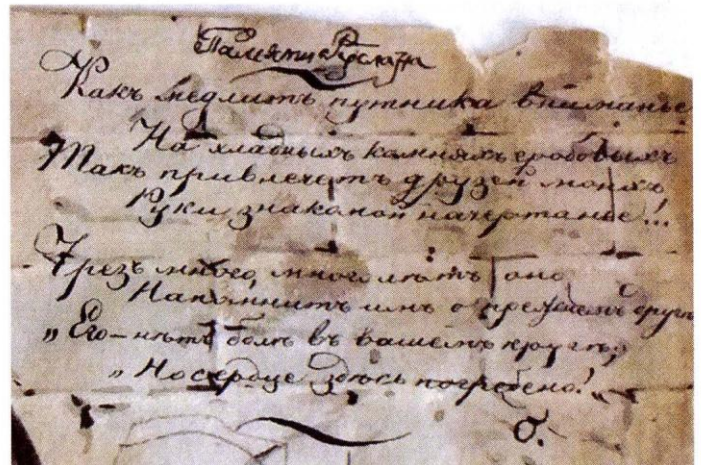 Памяти Руслана
Какъ медлитъ путника вниманье
На хладныхъ камняхъ гробовыхъ
Такъ привлечетъ друзей моихъ
Руки знакомой начертанье!..
Чрезъ много, много лѣтъ оно
Напомнитъ имъ о прежнемъ другѣ
„Его–нѣтъ болѣ въ вашемъ кругѣ;
„Но сердце здѣсь погребено!„
б.